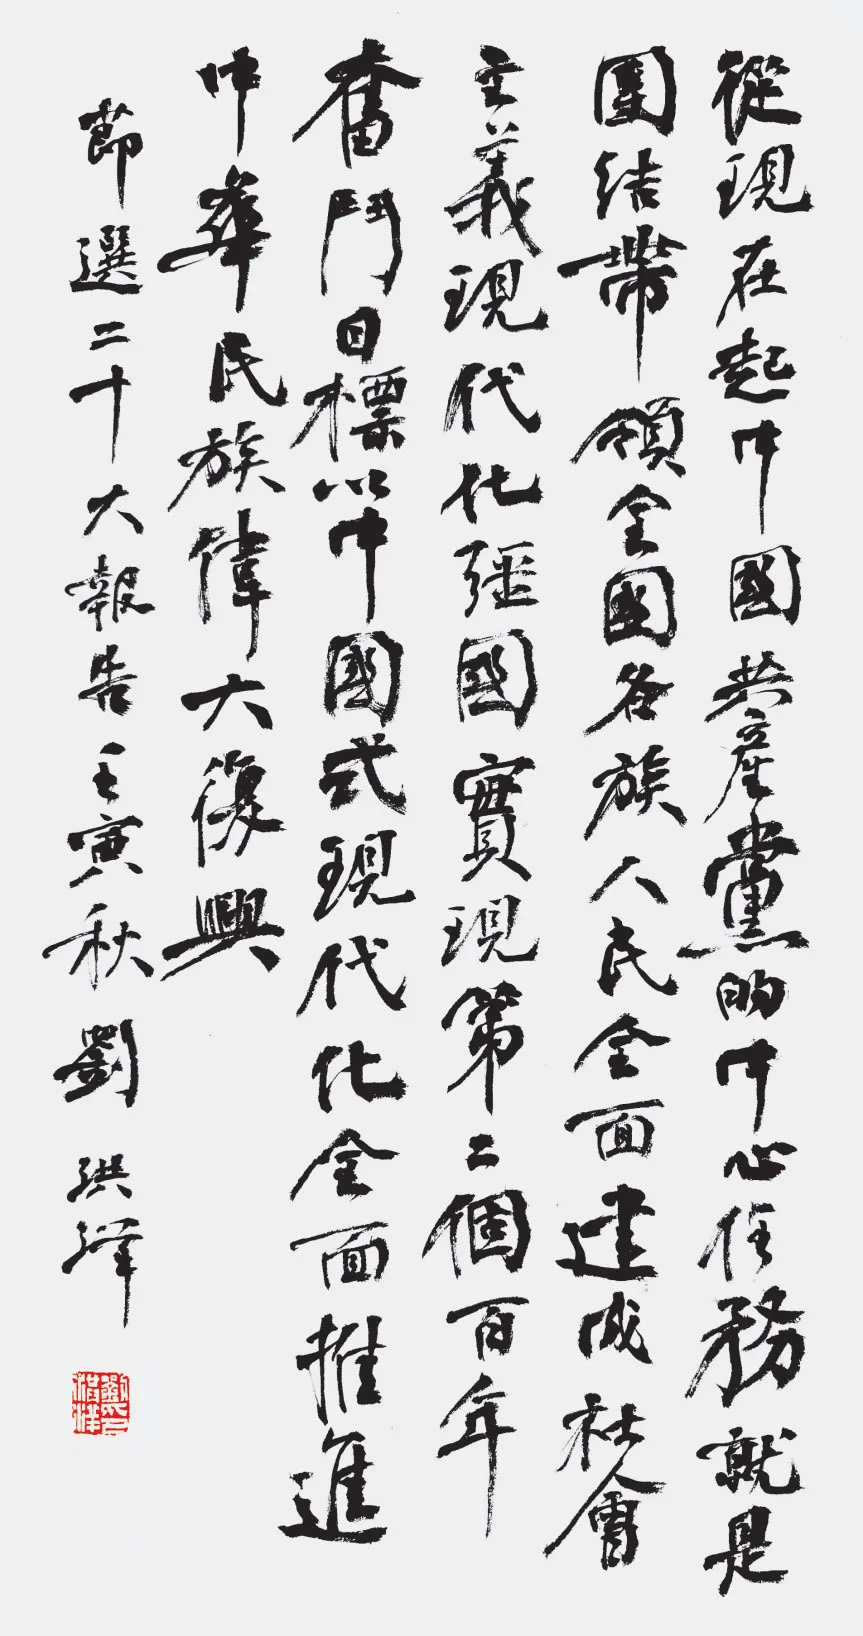 從現在起中國共產黨的中心任務就是
團結帶領全國各族人民全面建成社會
主義現代化彊國實現第二個百年
奮鬥目標以中國式現代化全面推進
中華民族偉大復興
節選二十大報告壬寅秋劉洪洋